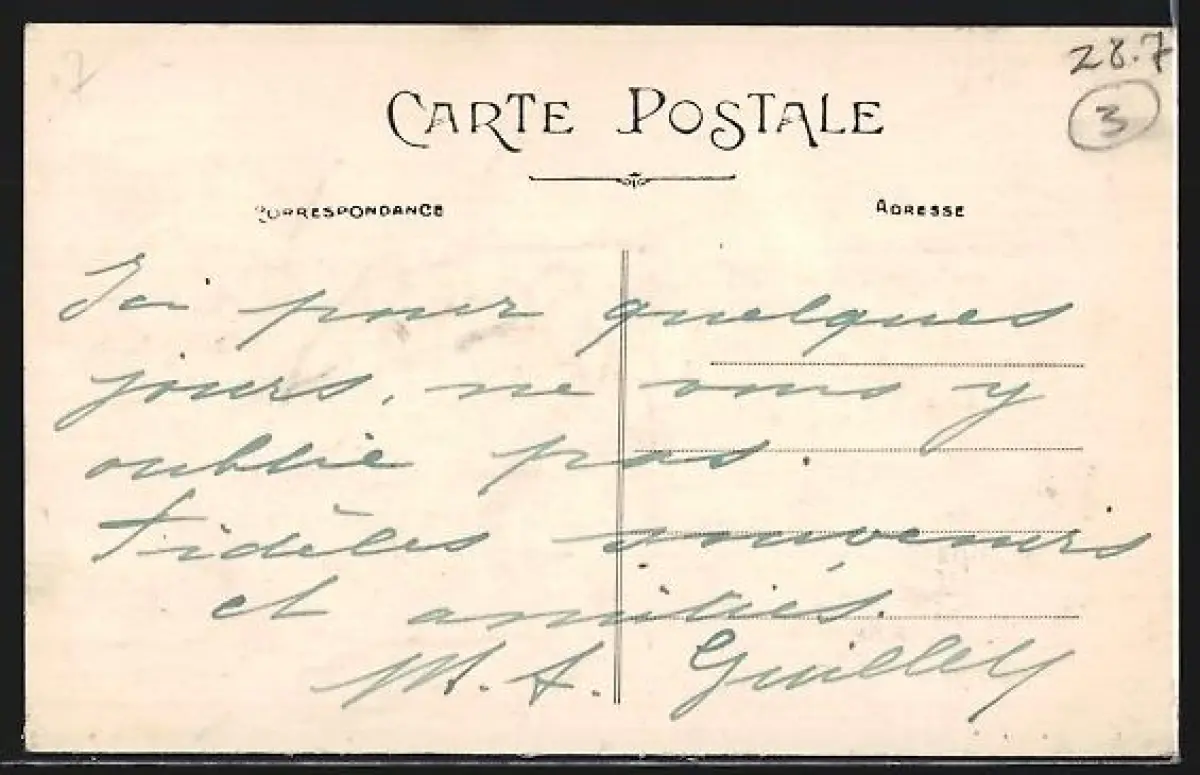 28.7
3
CARTE POSTALE
CORRESPONDANCE
ADRESSE
Ici pour quelques
jours, ne vous y
oublie pas.
Fidèles souvenirs
et amitiés.
M. A.